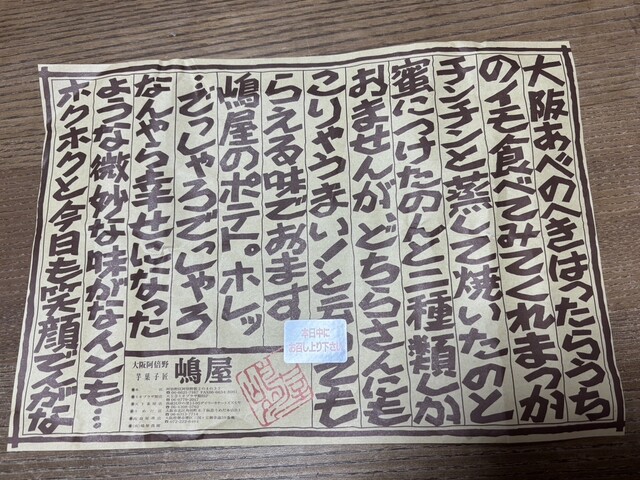 大阪あべのへきはったらうち
のイモ食べてみてくれまっか
チンチンと蒸して焼いたのと
蜜につけたのんと二種類しか
おませんが、どちらさんにも
こりゃうまい!と云っても
らえる味でおます
嶋屋のポテト。ホレッ
…でっしゃろでっしゃろ
なんやら幸せになった
ような微妙な味がなんとも…
ホクホクと今日も笑顔でんがな
本日中に
お召し上り下さい
大阪阿倍野
芋菓子匠
嶋屋